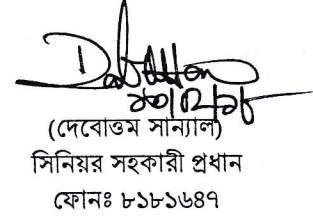 (দেবোত্তম সান্যাল)
সিনিয়র সহকারী প্রধান
ফোনঃ ৮১৮১৬৪৭